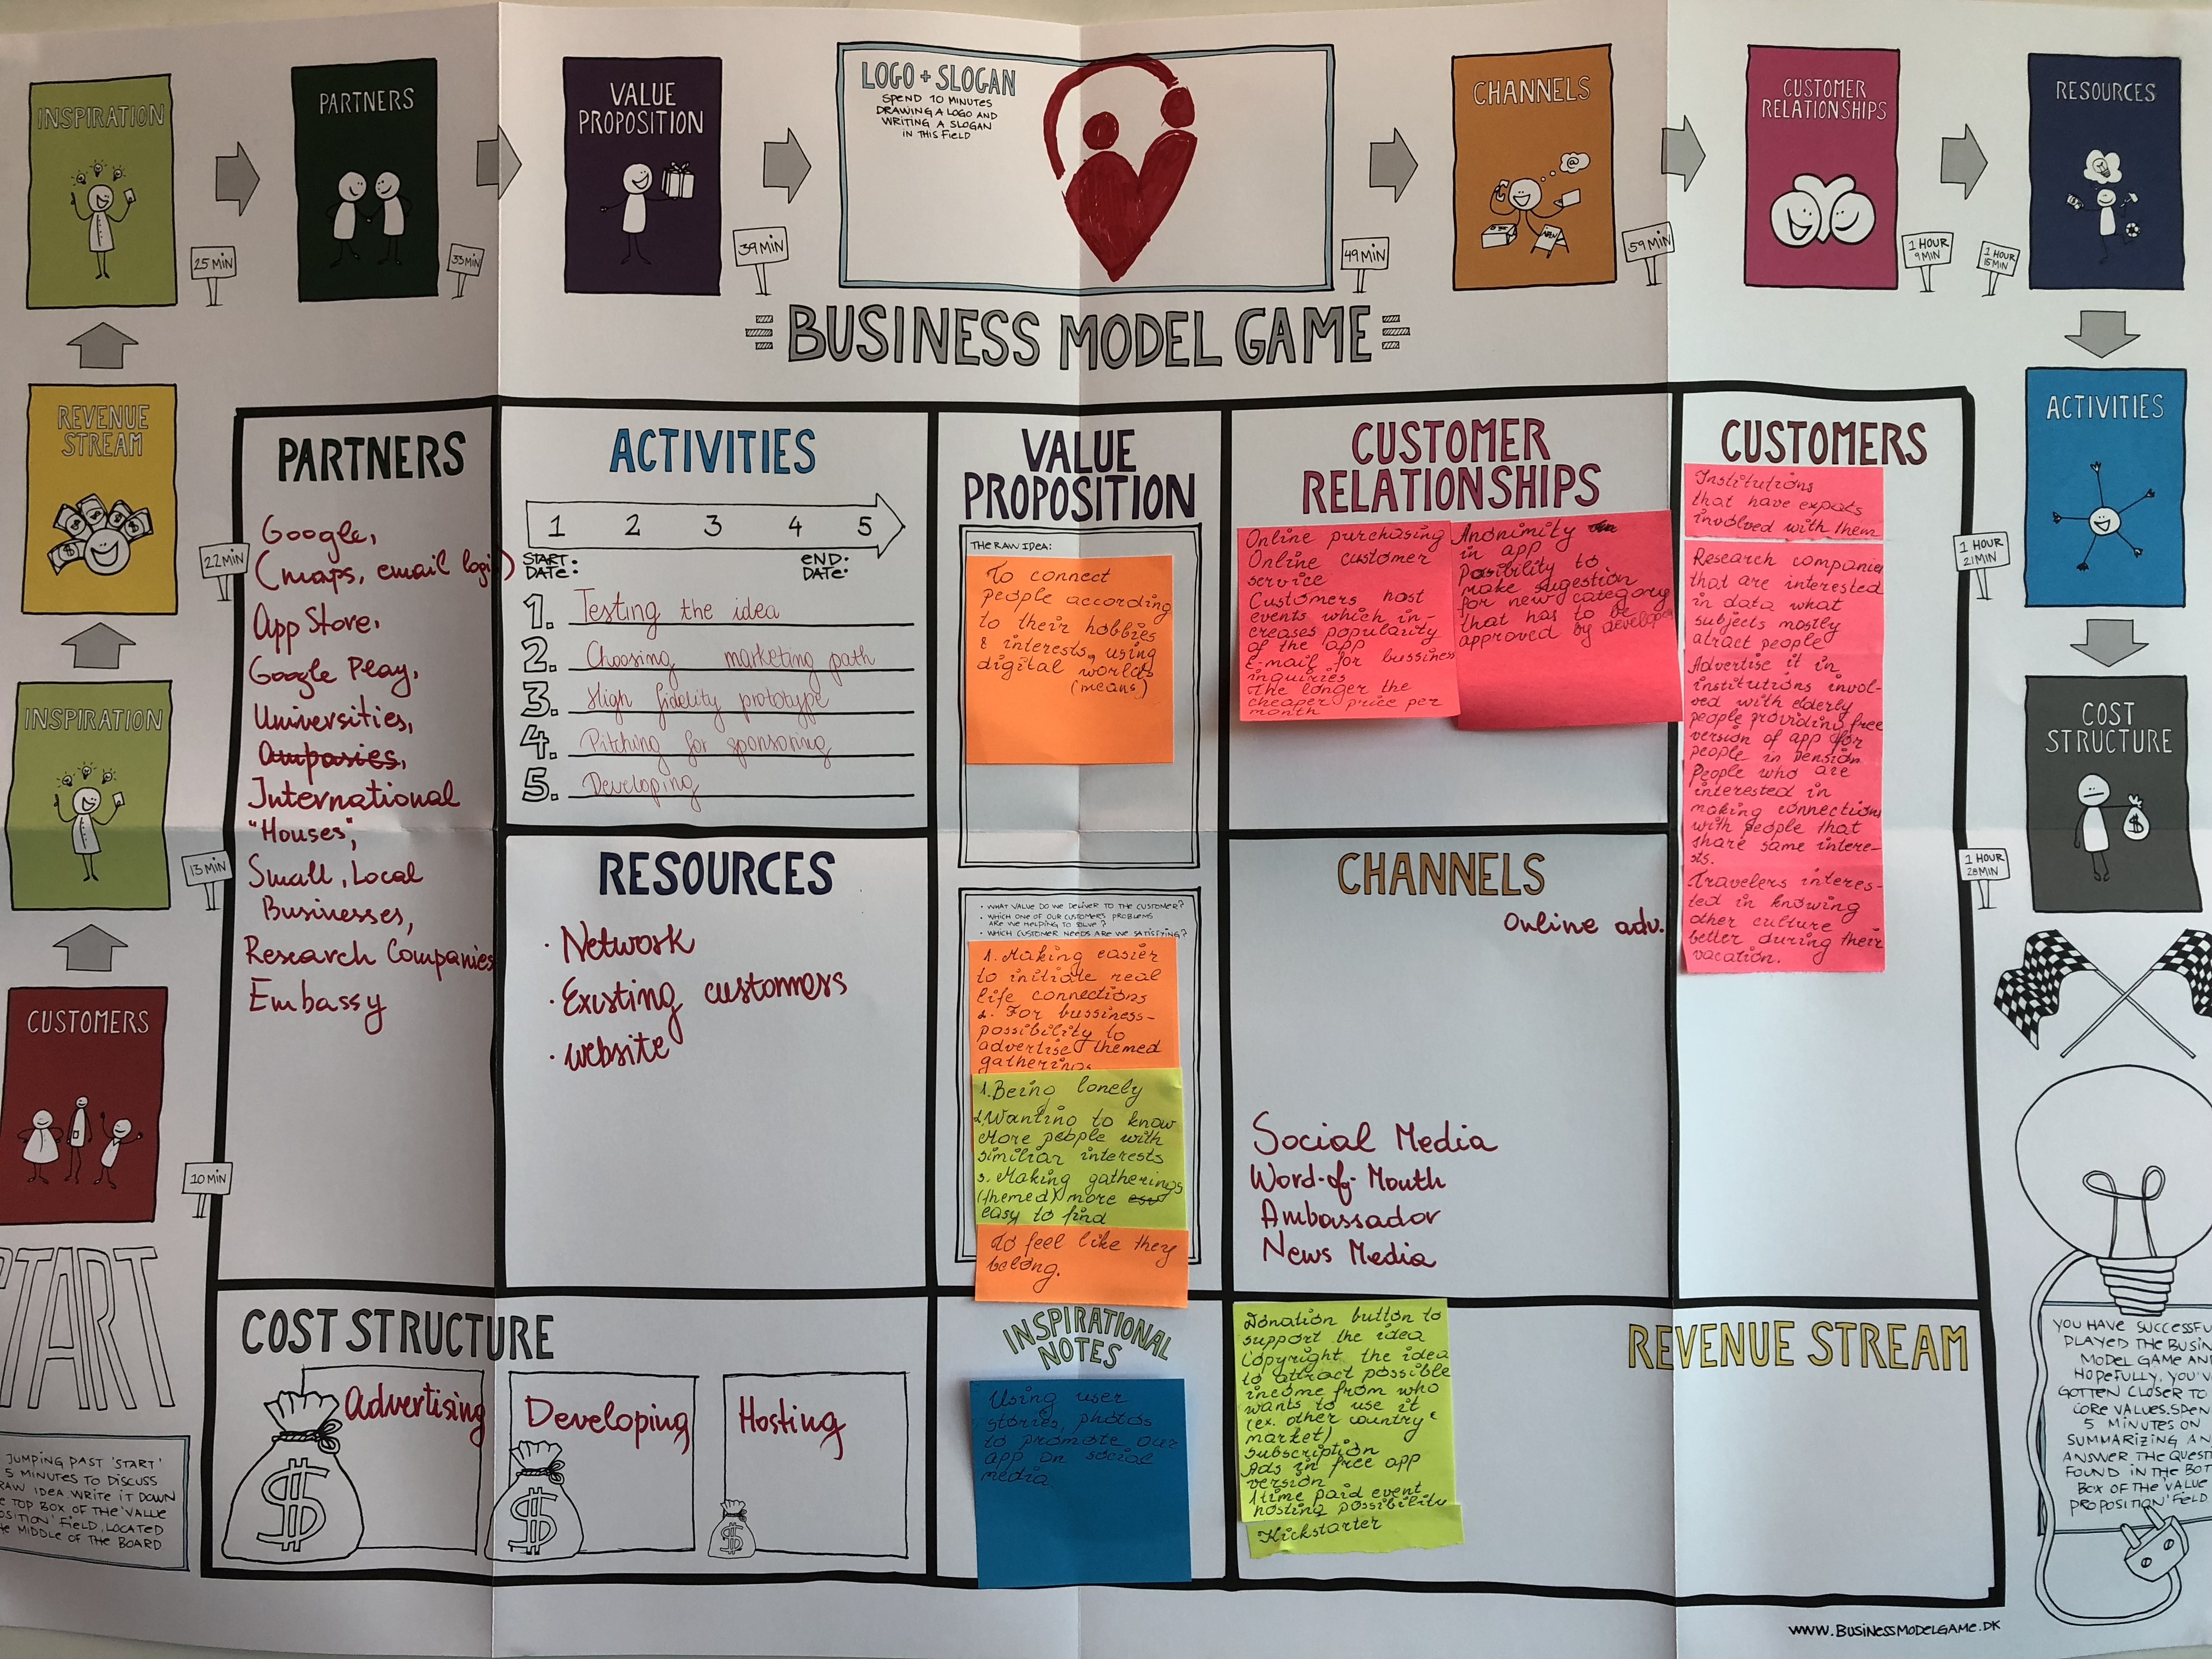 INSPIRATION
25 MIN
PARTNERS
33 MIN
VALUE
PROPOSITION
39 MIN
LOGO + SLOGAN
SPEND 10 MINUTES
DRAWING A LOGO AND
WRITING A SLOGAN
IN THIS FIELD
49 MIN
CHANNELS
59 MIN
CUSTOMER
RELATIONSHIPS
1 HOUR
9 MIN
1 HOUR
15 MIN
RESOURCES
BUSINESS MODEL GAME
REVENUE
STREAM
22 MIN
INSPIRATION
13 MIN
CUSTOMERS
10 MIN
START
JUMPING PAST 'START'
5 MINUTES TO DISCUSS
RAW IDEA. WRITE IT DOWN
TOP BOX OF THE 'VALUE
FIELD, LOCATED
MIDDLE OF THE BOARD
PARTNERS
Google,
(maps, email login)
App Store,
Google Play,
Universities,
International
"Houses",
Small, Local
Businesses,
Research Companies
Embassy
ACTIVITIES
1 2 3 4 5
START
DATE:
END:
DATE:
1. Testing the idea
2. Choosing marketing path
3. High fidelity prototype
4. Pitching for sponsoring
5. Developing
RESOURCES
· Network
· Existing custommers
· website
VALUE
PROPOSITION
THE RAW IDEA:
To connect
people according
to their hobbies
& interests, using
digital worlds
(means)
• WHAT VALUE DO WE DELIVER TO THE CUSTOMER?
• WHICH ONE OF OUR CUSTOMER'S PROBLEMS
ARE WE HELPING TO SOLVE?
• WHICH CUSTOMER NEEDS ARE WE SATISFYING?
1. Making easier
to initiate real
life connections
2. For bussiness-
possibility to
advertise themed
gatherings
1. Being lonely
2. Wanting to know
more people with
similiar interests
3. Making gatherings
(themed) more
easy to find
To feel like they
belong.
CUSTOMER
RELATIONSHIPS
Online purchasing
Online customer
service
Customers host
events which in-
creases popularity
of the app
E-mail for bussiness
inquiries
The longer the
cheaper price per
month
Anonimity
in app
Posibility to
make sugestion
for new category
that has to be
approved by developer
CHANNELS
Online adv.
Social Media
Word-of-Mouth
Ambassador
News Media
CUSTOMERS
Institutions
that have expats
involved with them
Research companies
that are interested
in data what
subjects mostly
atract people
Advertise it in
institutions invol-
ved with elderly
people providing free
version of app for
people in pension
People who are
interested in
making connections
with people that
share same intere-
sts.
Travelers interes-
ted in knowing
other culture
better during their
vacation.
COST STRUCTURE
Advertising
Developing
Hosting
INSPIRATIONAL
NOTES
Using user
stories, photos
to promote our
app on social
media.
REVENUE STREAM
Donation button to
support the idea
Copyright the idea
to attract possible
income from who
wants to use it
(ex. other country &
market)
subscription
Ads in free app
version
1 time paid event
hosting possibility
Kickstarter
ACTIVITIES
1 HOUR
21 MIN
COST
STRUCTURE
1 HOUR
28 MIN
YOU HAVE SUCCESSFU
PLAYED THE BUSIN
MODEL GAME AN
HOPEFULLY, YOU'V
GOTTEN CLOSER TO
CORE VALUES. SPEN
5 MINUTES ON
SUMMARIZING AN
ANSWER THE QUEST
FOUND IN THE BOT
BOX OF THE 'VALUE
PROPOSITION' FIELD
WWW.BUSINESSMODELGAME.DK